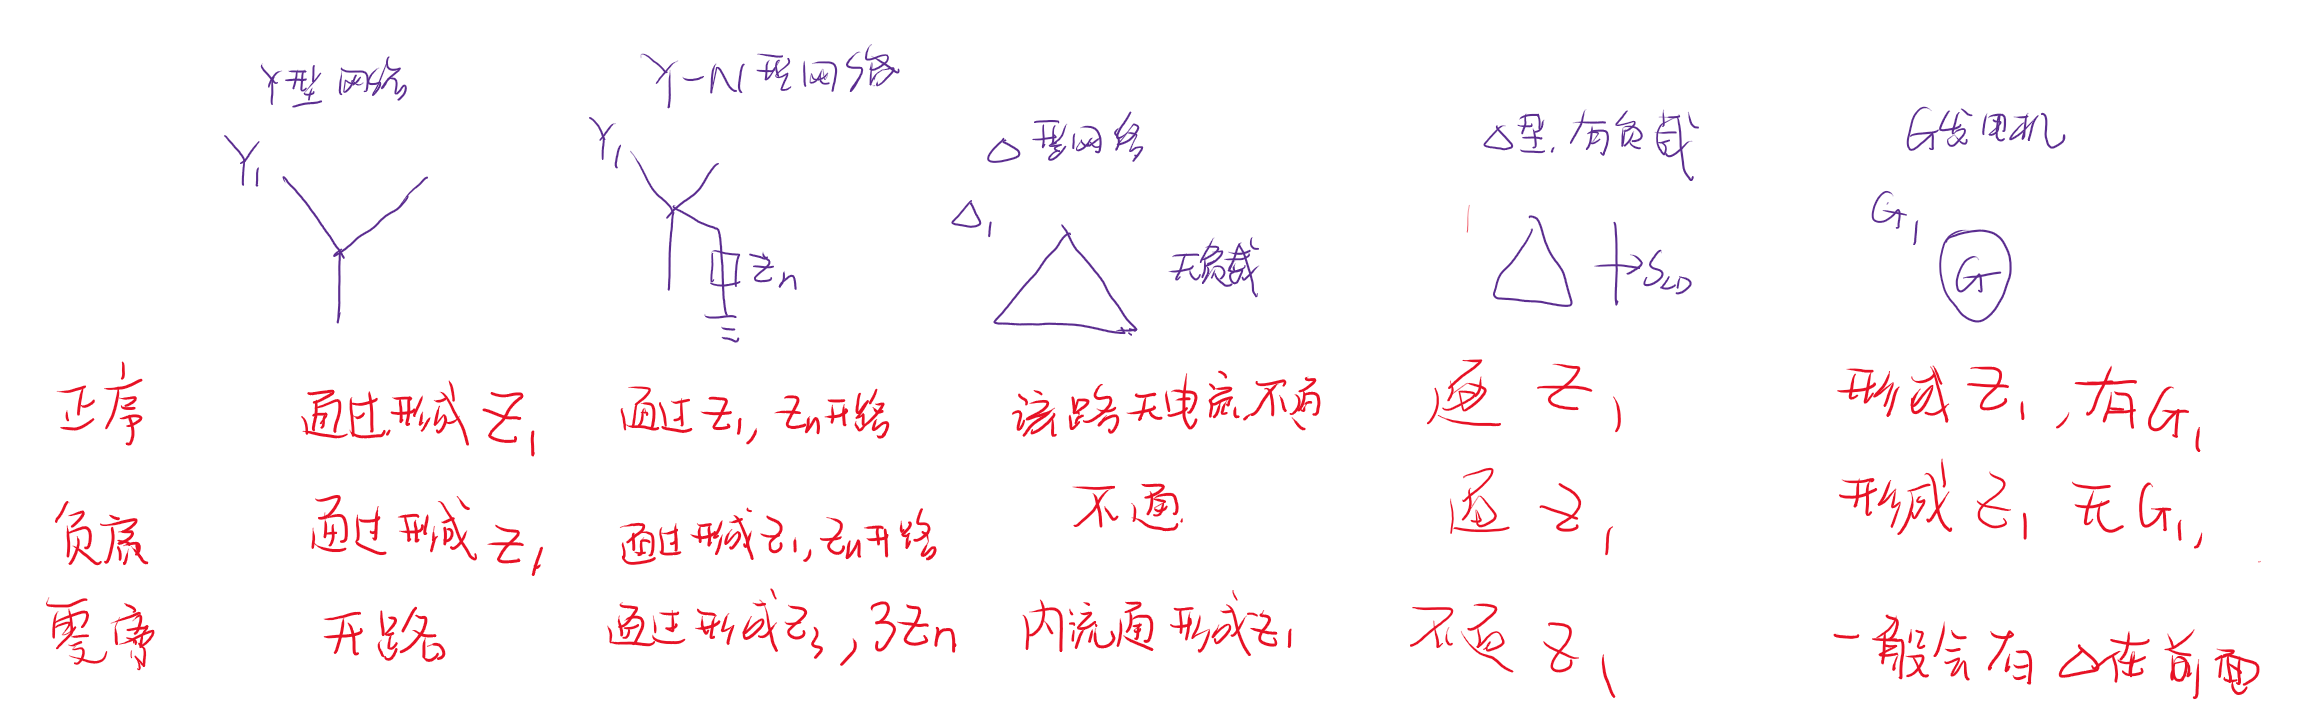 Y型网络
Y-N型网络
△型网络
△型.有负载
G发电机
Y1
Y1
△1
G1
Zn
无负载
SLD
G
正序 通过.形成Z1 通过Z1, Zn开路 该路无电流.不通 通 Z1 形成Z1, 有G1
负序 通过形成Z1 通过形成Z1, Zn开路 不通 通 Z1 形成Z1 无G1,
零序 开路 通过形成Z3, 3Zn 内流通 形成Z1 不通 Z1 一般会有△在前面